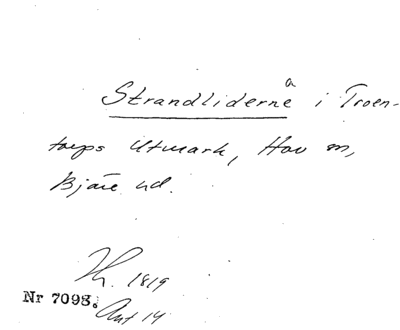 Strandliderna i Troen-
torps Utmark, Hov sn,
Bjäre hd.
Th. 1819
Nr 7098.
Akt 14